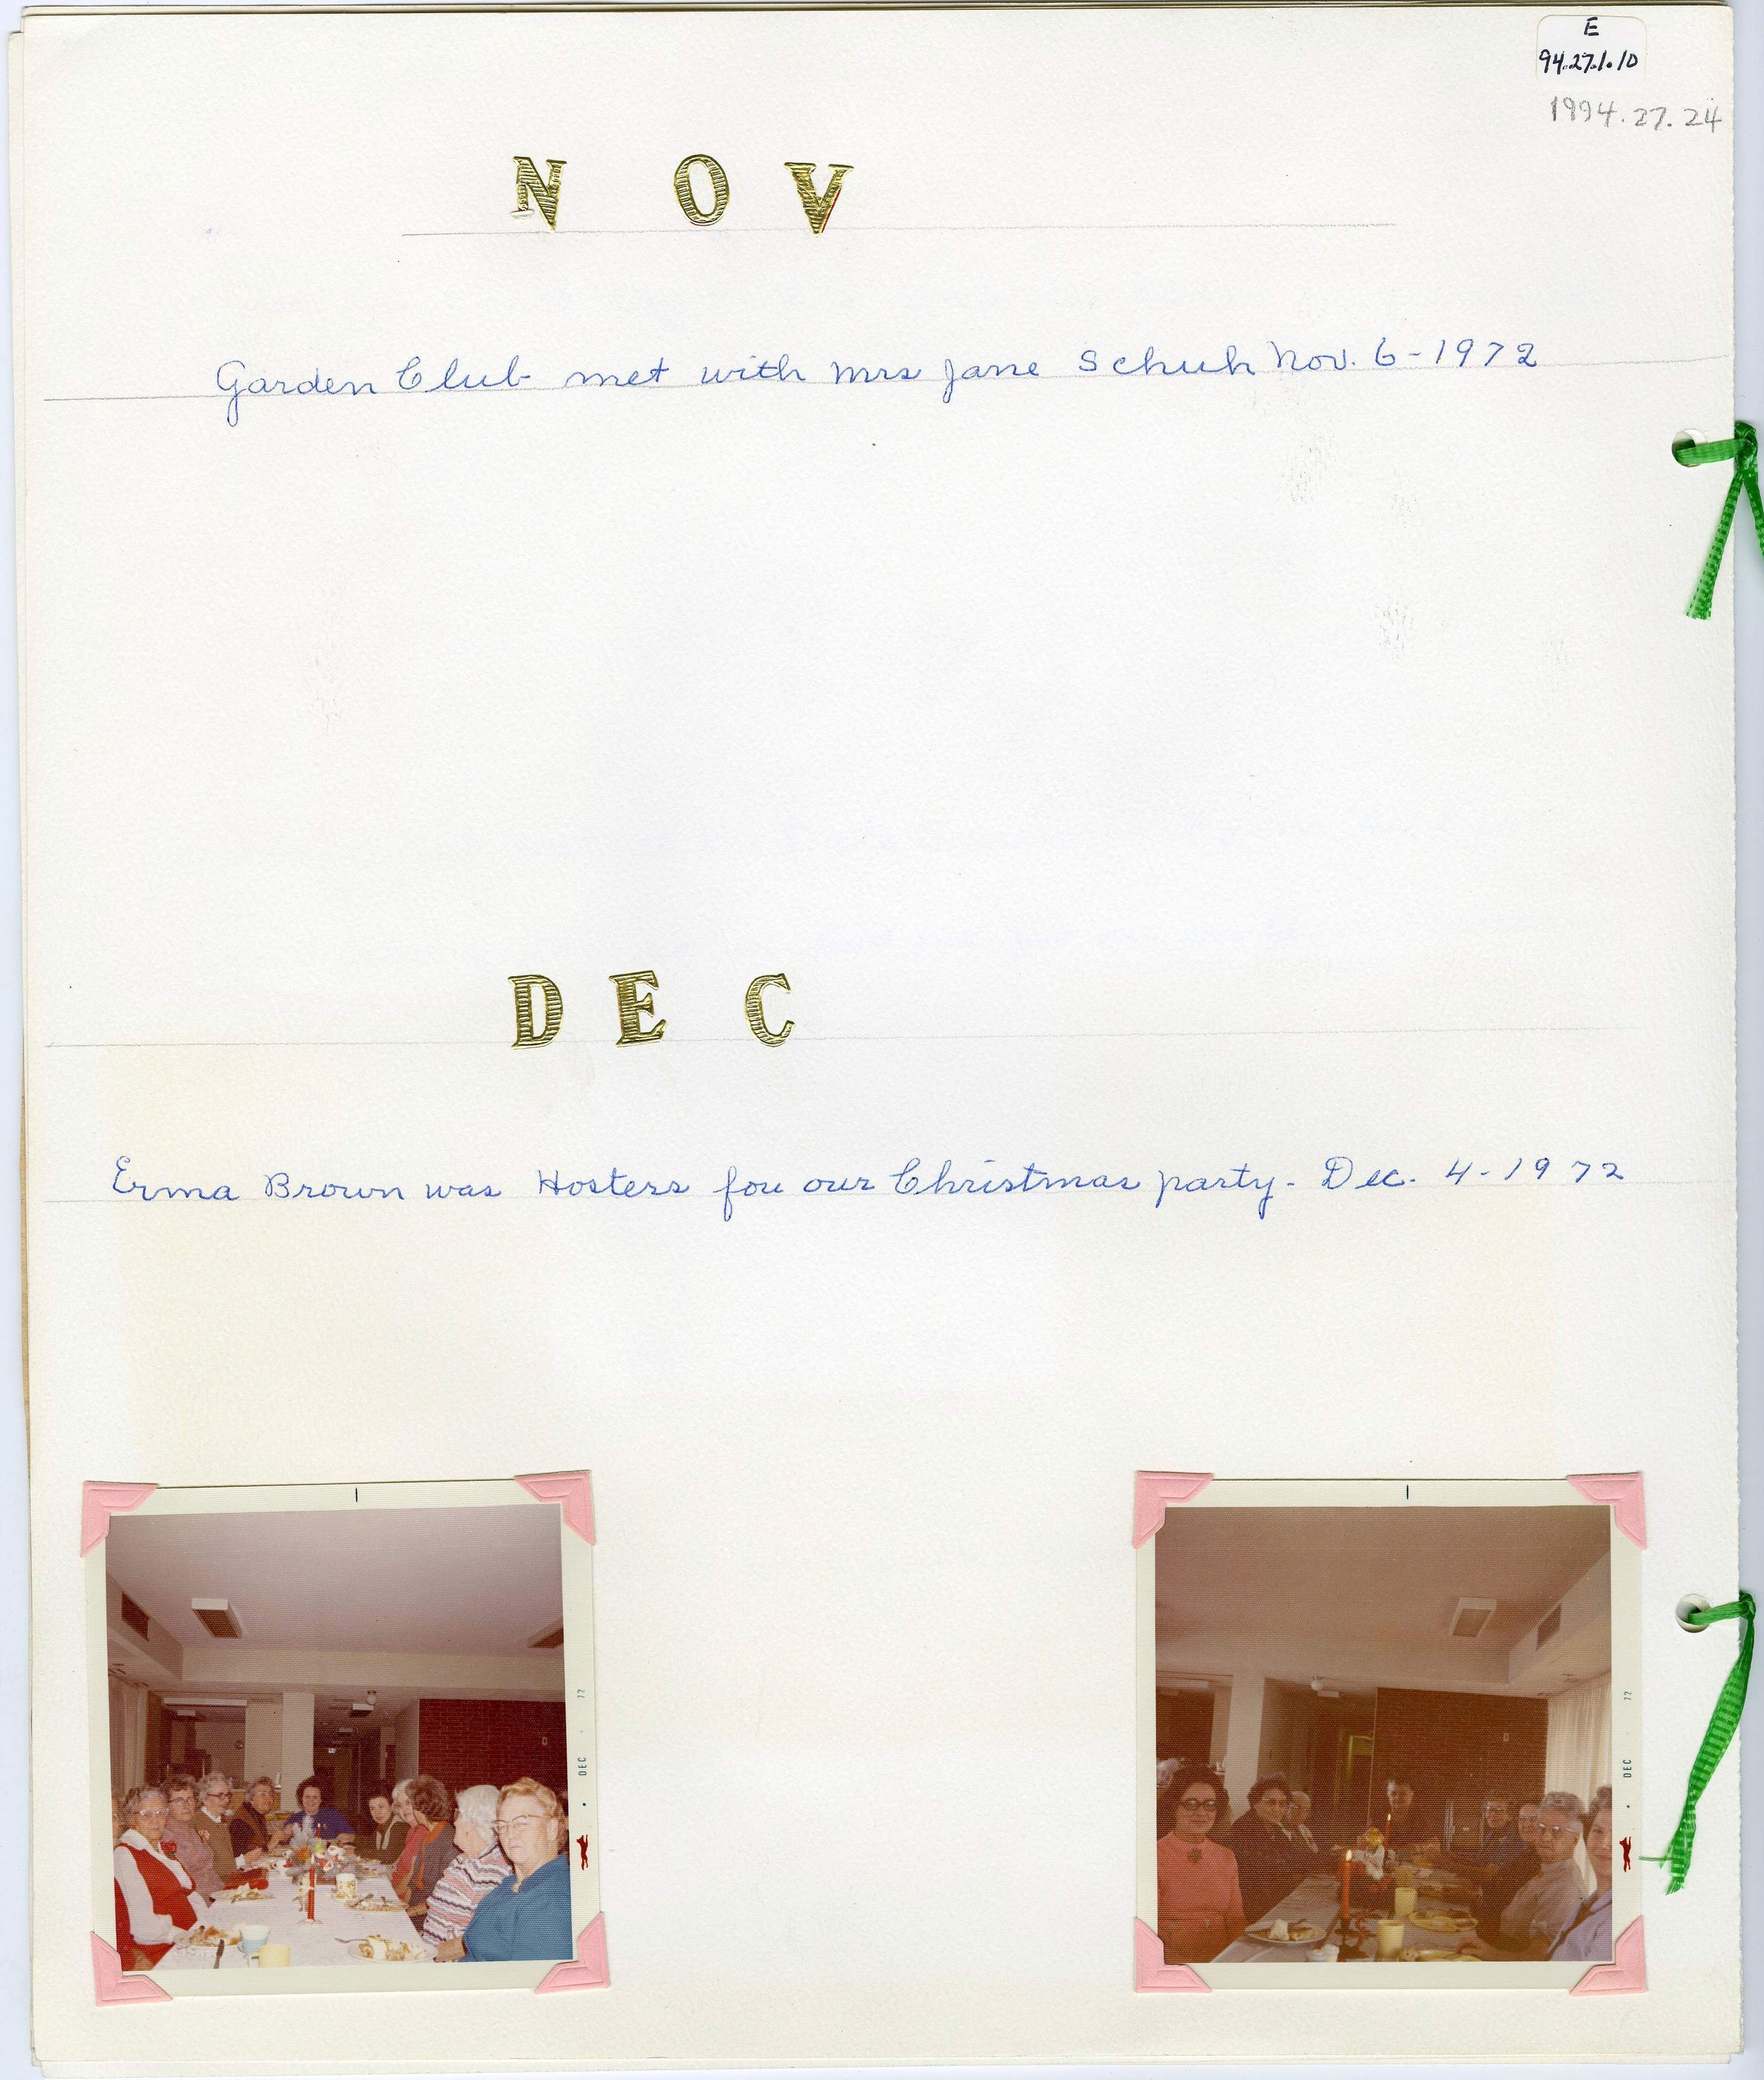 E
94.27.1.10
1994.27.24
N O V
Garden Club met with Mrs Jane Schuh Nov. 6-1972
D E C
Erma Brown was Hosters fou our Christmas party- Dec. 4-1972
DEC 72
DEC 72